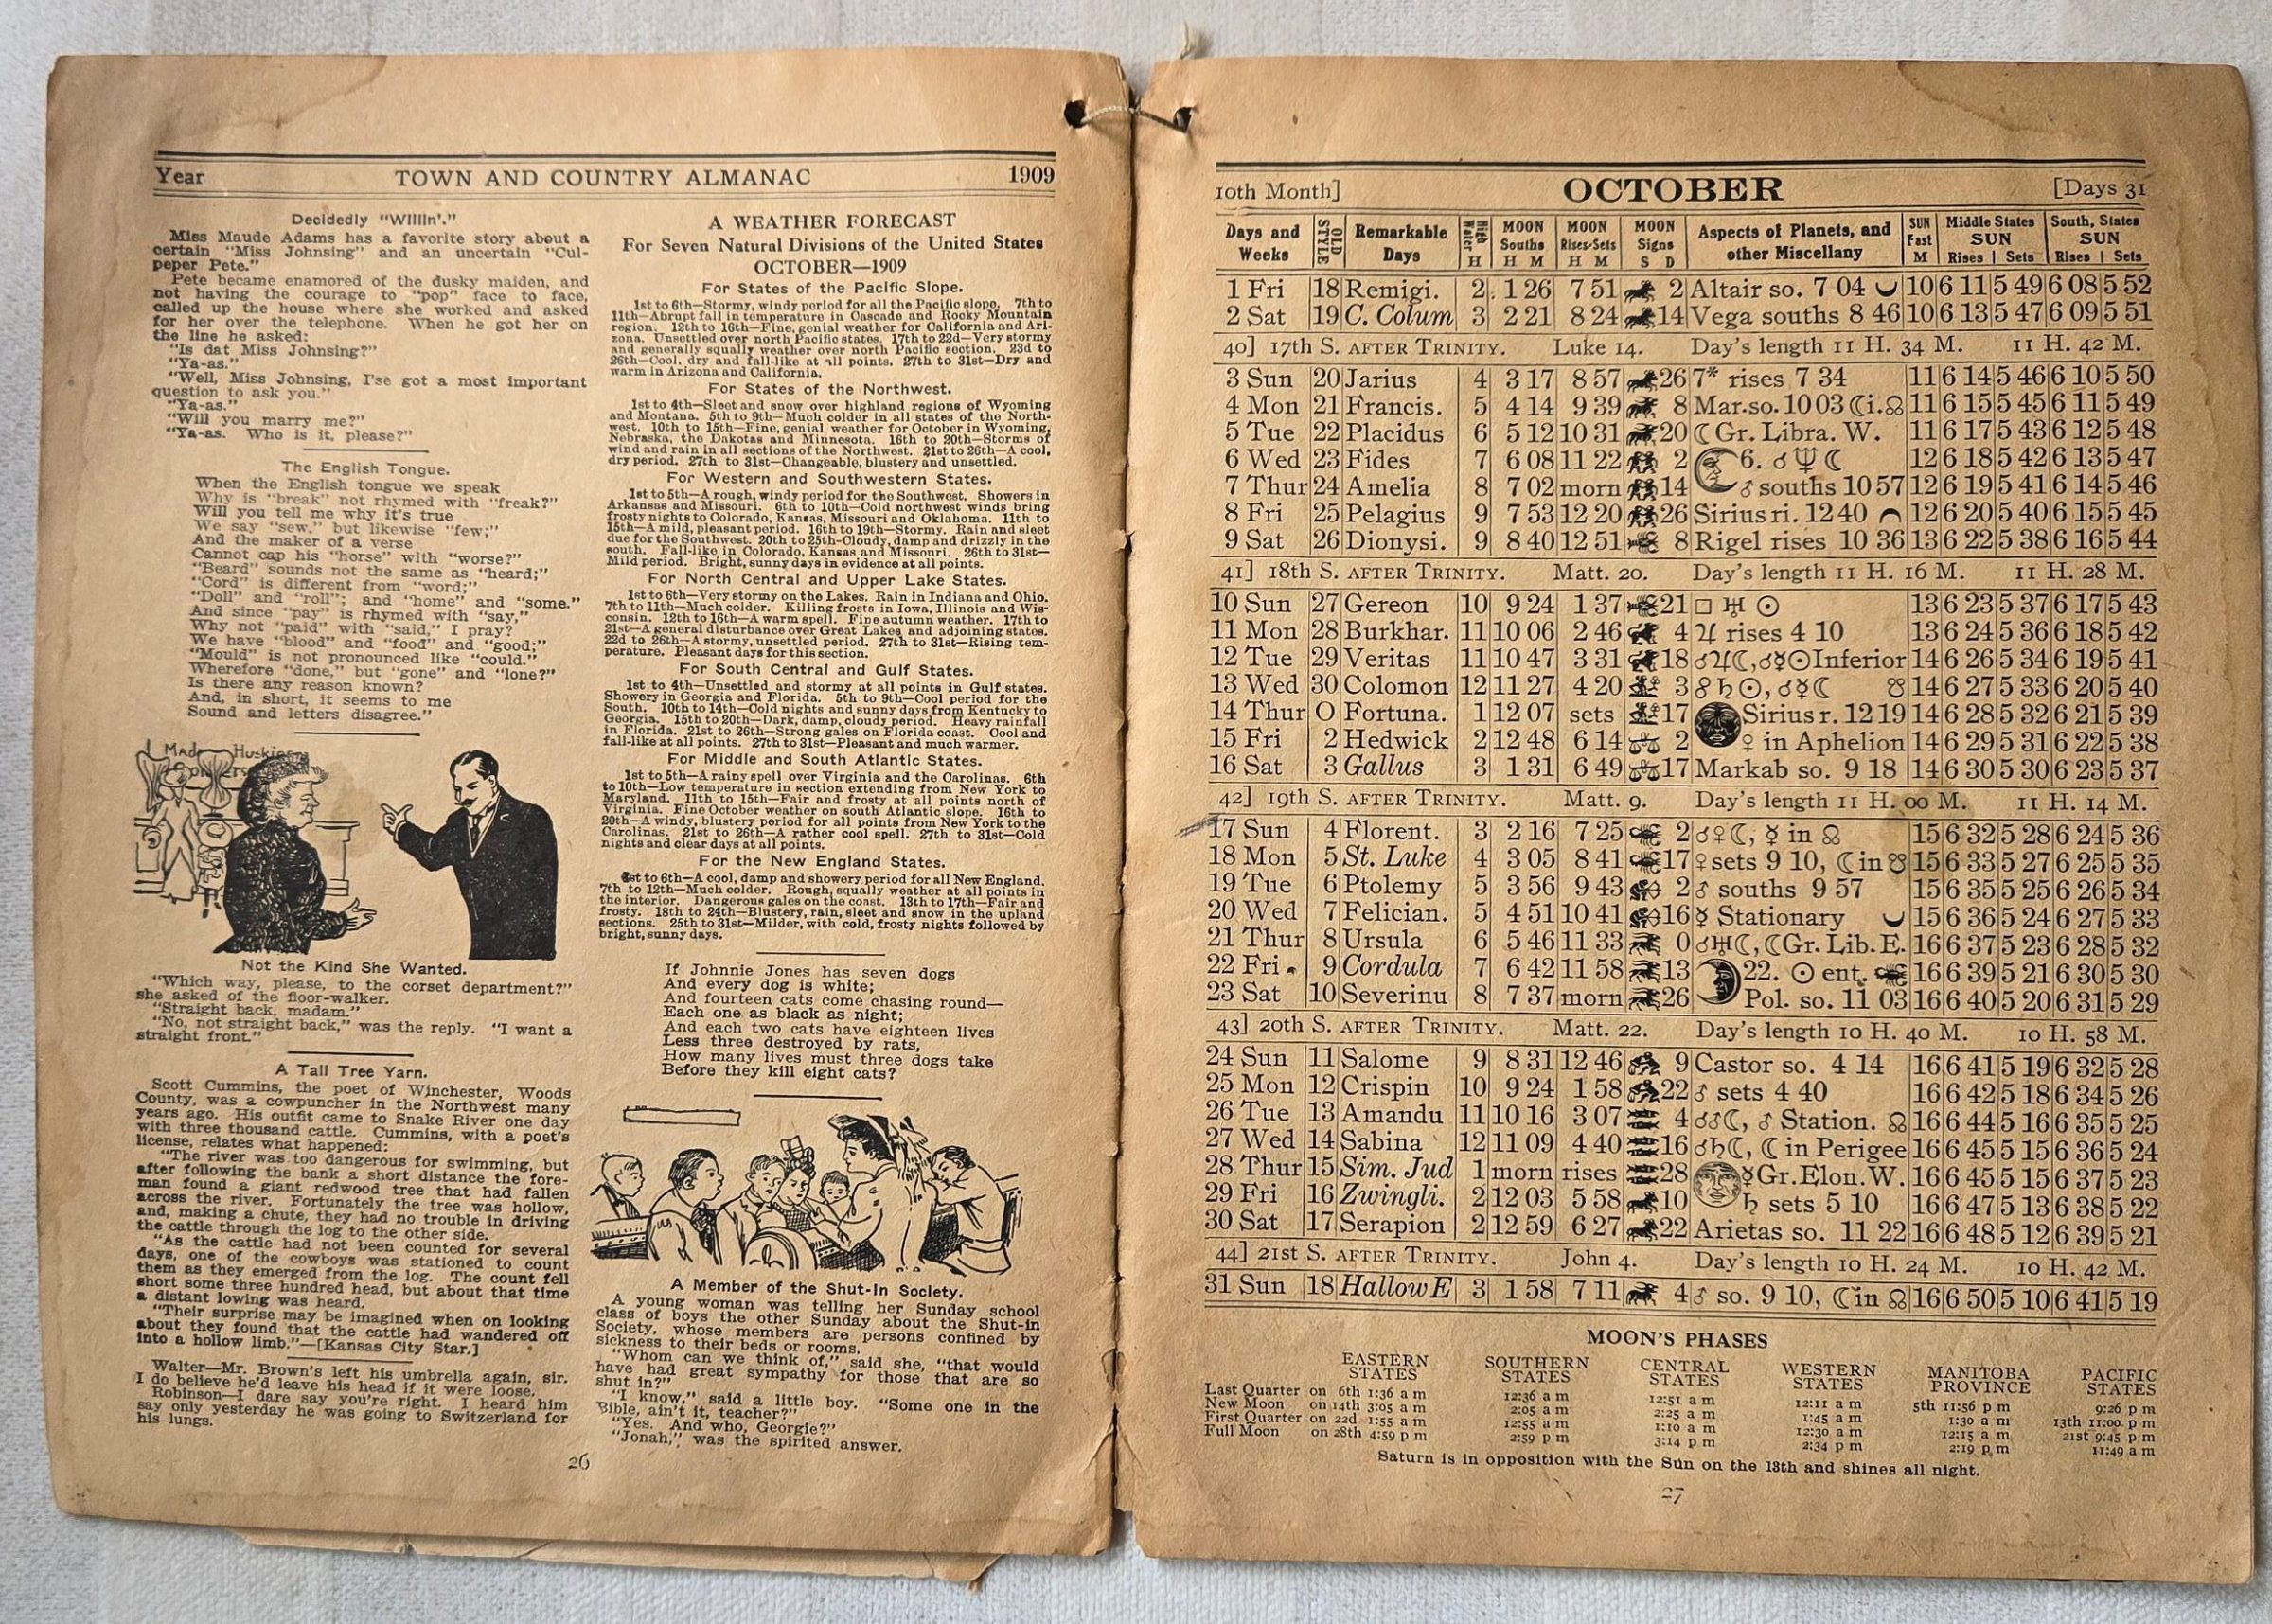 Year TOWN AND COUNTRY ALMANAC 1909
Decidedly "Willin'."
Miss Maude Adams has a favorite story about a
certain "Miss Johnsing" and an uncertain "Cul-
peper Pete."
Pete became enamored of the dusky maiden, and
not having the courage to "pop" face to face,
called up the house where she worked and asked
for her over the telephone. When he got her on
the line he asked:
"Is dat Miss Johnsing?"
"Ya-as."
"Well, Miss Johnsing, I'se got a most important
question to ask you."
"Ya-as."
"Will you marry me?"
"Ya-as. Who is it, please?"
The English Tongue.
When the English tongue we speak
Why is "break" not rhymed with "freak?"
Will you tell me why it's true
We say "sew," but likewise "few;"
And the maker of a verse
Cannot cap his "horse" with "worse?"
"Beard" sounds not the same as "heard;"
"Cord" is different from "word;"
"Doll" and "roll"; and "home" and "some."
And since "pay" is rhymed with "say,"
Why not "paid" with "said," I pray?
We have "blood" and "food" and "good;"
"Mould" is not pronounced like "could."
Wherefore "done," but "gone" and "lone?"
Is there any reason known?
And, in short, it seems to me
Sound and letters disagree."
Not the Kind She Wanted.
"Which way, please, to the corset department?"
she asked of the floor-walker.
"Straight back, madam."
"No, not straight back," was the reply. "I want a
straight front."
A Tall Tree Yarn.
Scott Cummins, the poet of Winchester, Woods
County, was a cowpuncher in the Northwest many
years ago. His outfit came to Snake River one day
with three thousand cattle. Cummins, with a poet's
license, relates what happened:
"The river was too dangerous for swimming, but
after following the bank a short distance the fore-
man found a giant redwood tree that had fallen
across the river. Fortunately the tree was hollow,
and, making a chute, they had no trouble in driving
the cattle through the log to the other side.
"As the cattle had not been counted for several
days, one of the cowboys was stationed to count
them as they emerged from the log. The count fell
short some three hundred head, but about that time
a distant lowing was heard.
"Their surprise may be imagined when on looking
about they found that the cattle had wandered off
into a hollow limb."—[Kansas City Star.]
Walter—Mr. Brown's left his umbrella again, sir.
I do believe he'd leave his head if it were loose.
Robinson—I dare say you're right. I heard him
say only yesterday he was going to Switzerland for
his lungs.
A WEATHER FORECAST
For Seven Natural Divisions of the United States
OCTOBER—1909
For States of the Pacific Slope.
1st to 6th—Stormy, windy period for all the Pacific slope. 7th to
11th—Abrupt fall in temperature in Cascade and Rocky Mountain
region. 12th to 16th—Fine, genial weather for California and Ari-
zona. Unsettled over north Pacific states. 17th to 22d—Very stormy
and generally squally weather over north Pacific section. 23d to
26th—Cool, dry and fall-like at all points. 27th to 31st—Dry and
warm in Arizona and California.
For States of the Northwest.
1st to 4th—Sleet and snow over highland regions of Wyoming
and Montana. 5th to 9th—Much colder in all states of the North-
west. 10th to 15th—Fine, genial weather for October in Wyoming,
Nebraska, the Dakotas and Minnesota. 16th to 20th—Storms of
wind and rain in all sections of the Northwest. 21st to 26th—A cool,
dry period. 27th to 31st—Changeable, blustery and unsettled.
For Western and Southwestern States.
1st to 5th—A rough, windy period for the Southwest. Showers in
Arkansas and Missouri. 6th to 10th—Cold northwest winds bring
frosty nights to Colorado, Kansas, Missouri and Oklahoma. 11th to
15th—A mild, pleasant period. 16th to 19th—Stormy. Rain and sleet
due for the Southwest. 20th to 25th—Cloudy, damp and drizzly in the
south. Fall-like in Colorado, Kansas and Missouri. 26th to 31st—
Mild period. Bright, sunny days in evidence at all points.
For North Central and Upper Lake States.
1st to 6th—Very stormy on the Lakes. Rain in Indiana and Ohio.
7th to 11th—Much colder. Killing frosts in Iowa, Illinois and Wis-
consin. 12th to 16th—A warm spell. Fine autumn weather. 17th to
21st—A general disturbance over Great Lakes and adjoining states.
22d to 26th—A stormy, unsettled period. 27th to 31st—Rising tem-
perature. Pleasant days for this section.
For South Central and Gulf States.
1st to 4th—Unsettled and stormy at all points in Gulf states.
Showery in Georgia and Florida. 5th to 9th—Cool period for the
South. 10th to 14th—Cold nights and sunny days from Kentucky to
Georgia. 15th to 20th—Dark, damp, cloudy period. Heavy rainfall
in Florida. 21st to 26th—Strong gales on Florida coast. Cool and
fall-like at all points. 27th to 31st—Pleasant and much warmer.
For Middle and South Atlantic States.
1st to 5th—A rainy spell over Virginia and the Carolinas. 6th
to 10th—Low temperature in section extending from New York to
Maryland. 11th to 15th—Fair and frosty at all points north of
Virginia. Fine October weather on south Atlantic slope. 16th to
20th—A windy, blustery period for all points from New York to the
Carolinas. 21st to 26th—A rather cool spell. 27th to 31st—Cold
nights and clear days at all points.
For the New England States.
1st to 6th—A cool, damp and showery period for all New England.
7th to 12th—Much colder. Rough, squally weather at all points in
the interior. Dangerous gales on the coast. 13th to 17th—Fair and
frosty. 18th to 24th—Blustery, rain, sleet and snow in the upland
sections. 25th to 31st—Milder, with cold, frosty nights followed by
bright, sunny days.
If Johnnie Jones has seven dogs
And every dog is white;
And fourteen cats come chasing round—
Each one as black as night;
And each two cats have eighteen lives
Less three destroyed by rats,
How many lives must three dogs take
Before they kill eight cats?
A Member of the Shut-In Society.
A young woman was telling her Sunday school
class of boys the other Sunday about the Shut-in
Society, whose members are persons confined by
sickness to their beds or rooms.
"Whom can we think of," said she, "that would
have had great sympathy for those that are so
shut in?"
"I know," said a little boy. "Some one in the
Bible, ain't it, teacher?"
"Yes. And who, Georgie?"
"Jonah," was the spirited answer.
26
10th Month] OCTOBER [Days 31
Days and Weeks | OLD STYLE | Remarkable Days | High Water H | MOON Souths H M | MOON Rises-Sets H M | MOON Signs S D | Aspects of Planets, and other Miscellany | SUN Fast M | Middle States SUN Rises | Sets | South, States SUN Rises | Sets
1 Fri 18 Remigi. 2 1 26 7 51 2 Altair so. 7 04 10 6 11 5 49 6 08 5 52
2 Sat 19 C. Colum 3 2 21 8 24 14 Vega souths 8 46 10 6 13 5 47 6 09 5 51
40] 17th S. AFTER TRINITY. Luke 14. Day's length 11 H. 34 M. 11 H. 42 M.
3 Sun 20 Jarius 4 3 17 8 57 26 7* rises 7 34 11 6 14 5 46 6 10 5 50
4 Mon 21 Francis. 5 4 14 9 39 8 Mar. so. 10 03 ☾ i. ☊ 11 6 15 5 45 6 11 5 49
5 Tue 22 Placidus 6 5 12 10 31 20 ☾ Gr. Libra. W. 11 6 17 5 43 6 12 5 48
6 Wed 23 Fides 7 6 08 11 22 2 6. ☌ ♆ ☾ 12 6 18 5 42 6 13 5 47
7 Thur 24 Amelia 8 7 02 morn 14 ♂ souths 10 57 12 6 19 5 41 6 14 5 46
8 Fri 25 Pelagius 9 7 53 12 20 26 Sirius ri. 12 40 12 6 20 5 40 6 15 5 45
9 Sat 26 Dionysi. 9 8 40 12 51 8 Rigel rises 10 36 13 6 22 5 38 6 16 5 44
41] 18th S. AFTER TRINITY. Matt. 20. Day's length 11 H. 16 M. 11 H. 28 M.
10 Sun 27 Gereon 10 9 24 1 37 21 □ ♅ ☉ 13 6 23 5 37 6 17 5 43
11 Mon 28 Burkhar. 11 10 06 2 46 4 ♃ rises 4 10 13 6 24 5 36 6 18 5 42
12 Tue 29 Veritas 11 10 47 3 31 18 ☌♃☾, ☌☿☉ Inferior 14 6 26 5 34 6 19 5 41
13 Wed 30 Colomon 12 11 27 4 20 3 ☍♄☉, ☌☿☾ ☋ 14 6 27 5 33 6 20 5 40
14 Thur O Fortuna. 1 12 07 sets 17 Sirius r. 12 19 14 6 28 5 32 6 21 5 39
15 Fri 2 Hedwick 2 12 48 6 14 2 ♀ in Aphelion 14 6 29 5 31 6 22 5 38
16 Sat 3 Gallus 3 1 31 6 49 17 Markab so. 9 18 14 6 30 5 30 6 23 5 37
42] 19th S. AFTER TRINITY. Matt. 9. Day's length 11 H. 00 M. 11 H. 14 M.
17 Sun 4 Florent. 3 2 16 7 25 2 ☌♀☾, ☿ in ☊ 15 6 32 5 28 6 24 5 36
18 Mon 5 St. Luke 4 3 05 8 41 17 ♀ sets 9 10, ☾ in ☋ 15 6 33 5 27 6 25 5 35
19 Tue 6 Ptolemy 5 3 56 9 43 2 ♂ souths 9 57 15 6 35 5 25 6 26 5 34
20 Wed 7 Felician. 5 4 51 10 41 16 ☿ Stationary 15 6 36 5 24 6 27 5 33
21 Thur 8 Ursula 6 5 46 11 33 0 ☌♅☾, ☾ Gr. Lib. E. 16 6 37 5 23 6 28 5 32
22 Fri 9 Cordula 7 6 42 11 58 13 22. ☉ ent. 16 6 39 5 21 6 30 5 30
23 Sat 10 Severinu 8 7 37 morn 26 Pol. so. 11 03 16 6 40 5 20 6 31 5 29
43] 20th S. AFTER TRINITY. Matt. 22. Day's length 10 H. 40 M. 10 H. 58 M.
24 Sun 11 Salome 9 8 31 12 46 9 Castor so. 4 14 16 6 41 5 19 6 32 5 28
25 Mon 12 Crispin 10 9 24 1 58 22 ♂ sets 4 40 16 6 42 5 18 6 34 5 26
26 Tue 13 Amandu 11 10 16 3 07 4 ☌♂☾, ♂ Station. ☊ 16 6 44 5 16 6 35 5 25
27 Wed 14 Sabina 12 11 09 4 40 16 ☌♄☾, ☾ in Perigee 16 6 45 5 15 6 36 5 24
28 Thur 15 Sim. Jud 1 morn rises 28 ☿ Gr. Elon. W. 16 6 45 5 15 6 37 5 23
29 Fri 16 Zwingli. 2 12 03 5 58 10 ♄ sets 5 10 16 6 47 5 13 6 38 5 22
30 Sat 17 Serapion 2 12 59 6 27 22 Arietas so. 11 22 16 6 48 5 12 6 39 5 21
44] 21st S. AFTER TRINITY. John 4. Day's length 10 H. 24 M. 10 H. 42 M.
31 Sun 18 Hallow E 3 1 58 7 11 4 ♂ so. 9 10, ☾ in ☊ 16 6 50 5 10 6 41 5 19
MOON'S PHASES
EASTERN STATES SOUTHERN STATES CENTRAL STATES WESTERN STATES MANITOBA PROVINCE PACIFIC STATES
Last Quarter on 6th 1:36 a m 12:36 a m 12:51 a m 12:11 a m 5th 11:56 p m 9:26 p m
New Moon on 14th 3:05 a m 2:05 a m 2:25 a m 1:45 a m 1:30 a m 13th 11:00 p m
First Quarter on 22d 1:55 a m 12:55 a m 1:10 a m 12:30 a m 12:15 a m 21st 9:45 p m
Full Moon on 28th 4:59 p m 2:59 p m 3:14 p m 2:34 p m 2:19 p m 11:49 a m
Saturn is in opposition with the Sun on the 13th and shines all night.
27